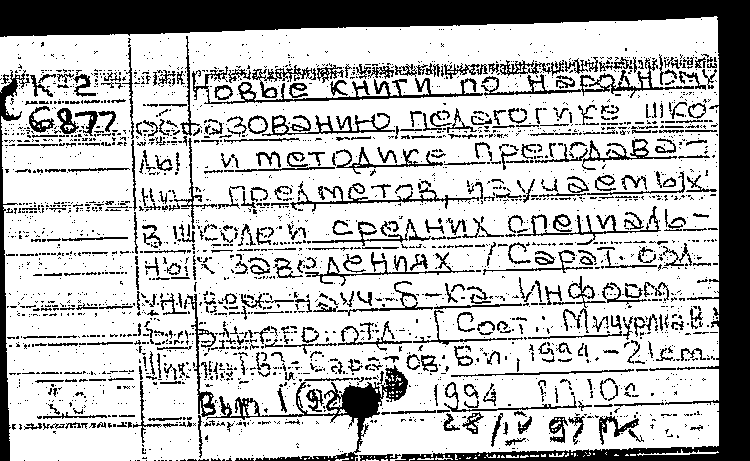 К-2 Новые книги по народному
6877 образованию, педагогике шко-
лы и методике преподава-
ния предметов, изучаемых
в школе и средних специаль-
ных заведениях / Сарат. обл.
универс. науч. б-ка. Информ.-
библиогр. отд.; [Сост.: Мичурина В.А.
Саратов: Б.и., 1994. - 21 cm
Вып. 1 (92) 1994. 10 с.
28/IV 97 МК